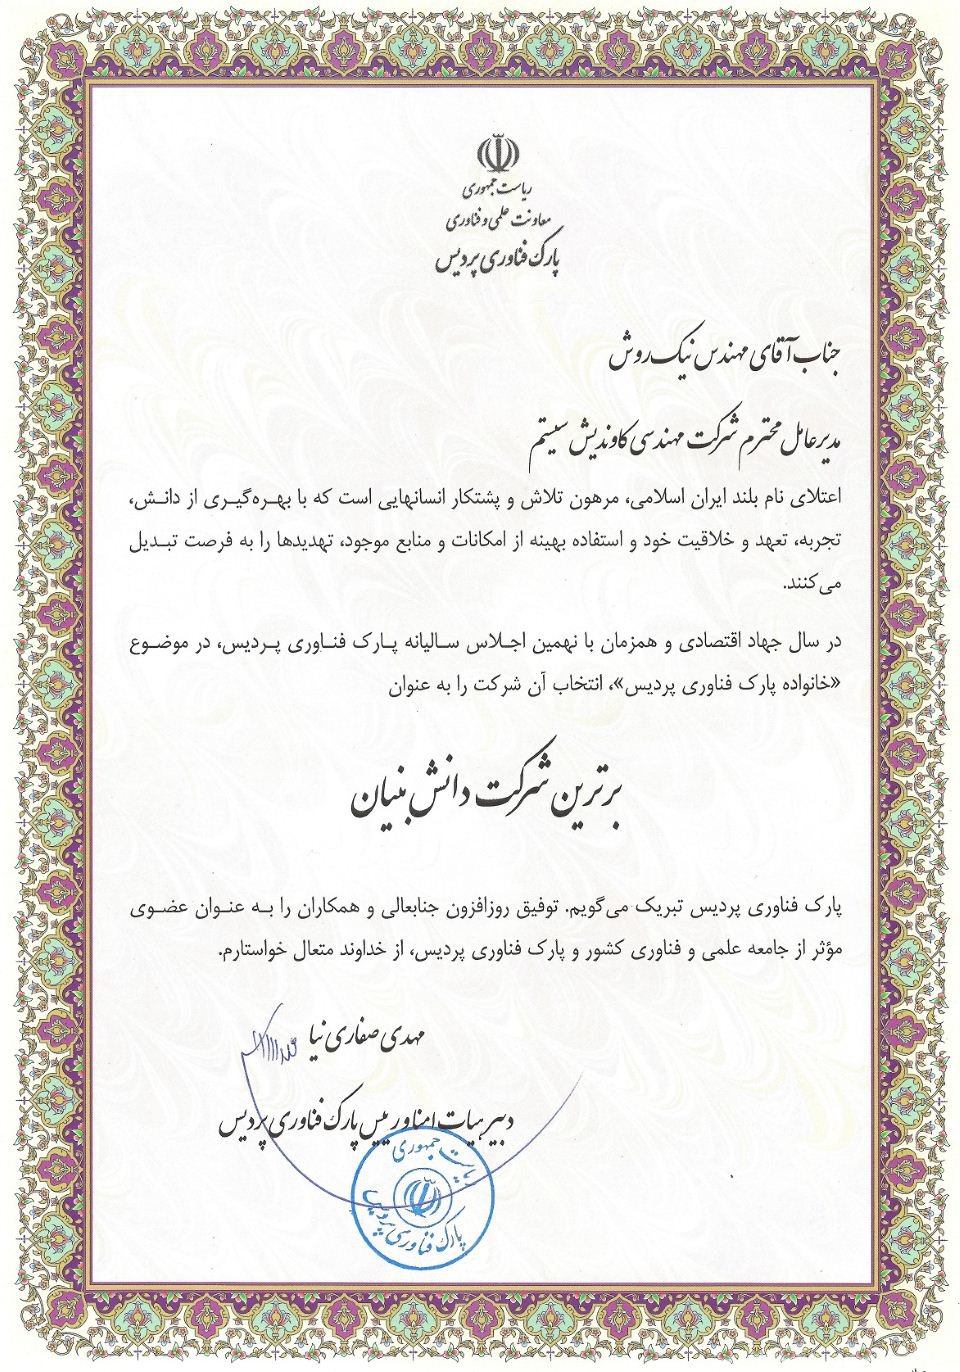 ریاست جمهوری
معاونت علمی و فناوری
پارک فناوری پردیس
جناب آقای مهندس نیک روش
مدیرعامل محترم شرکت مهندسی کاوندیش سیستم
اعتلای نام بلند ایران اسلامی، مرهون تلاش و پشتکار انسانهایی است که با بهره‌گیری از دانش،
تجربه، تعهد و خلاقیت خود و استفاده بهینه از امکانات و منابع موجود، تهدیدها را به فرصت تبدیل
می‌کنند.
در سال جهاد اقتصادی و همزمان با نهمین اجلاس سالیانه پارک فناوری پردیس، در موضوع
«خانواده پارک فناوری پردیس»، انتخاب آن شرکت را به عنوان
برترین شرکت دانش بنیان
پارک فناوری پردیس تبریک می‌گویم. توفیق روزافزون جنابعالی و همکاران را به عنوان عضوی
مؤثر از جامعه علمی و فناوری کشور و پارک فناوری پردیس، از خداوند متعال خواستارم.
مهدی صفاری نیا
دبیر هیات امنا و رییس پارک فناوری پردیس
ریاست جمهوری
پارک فناوری پردیس